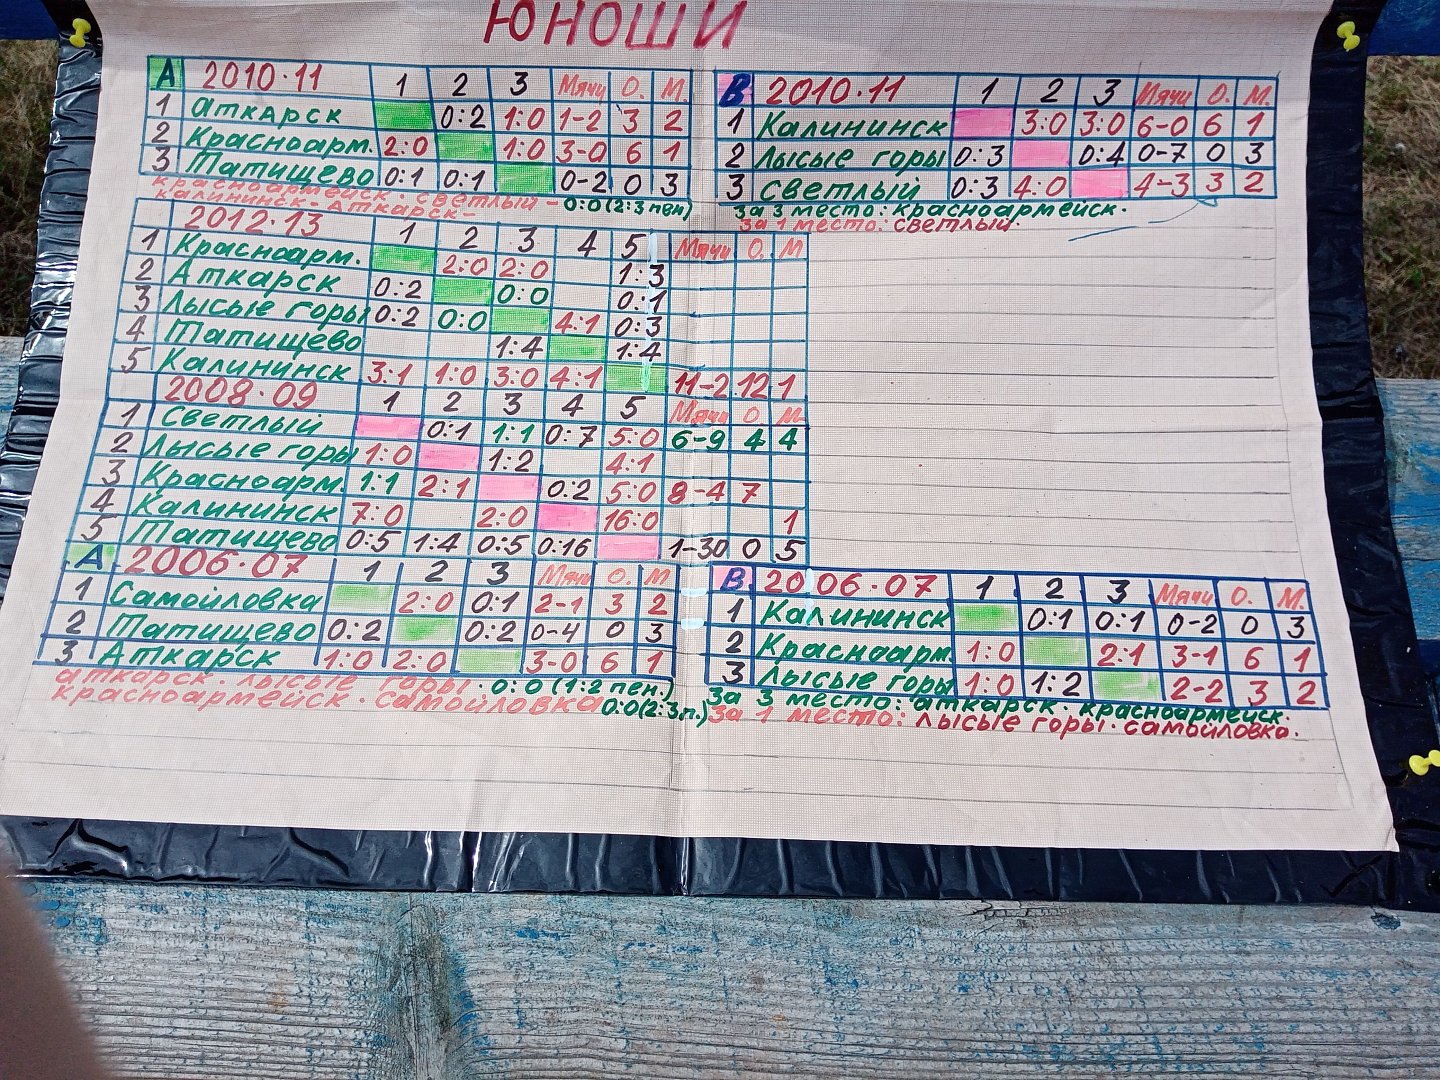 ЮНОШИ
А 2010·11 1 2 3 Мячи О. М.
1 Аткарск 0:2 1:0 1-2 3 2
2 Красноарм. 2:0 1:0 3-0 6 1
3 Татищево 0:1 0:1 0-2 0 3
красноармейск·светлый- 0:0(2:3 пен)
калининск-Аткарск-
В 2010·11 1 2 3 Мячи О. М.
1 Калининск 3:0 3:0 6-0 6 1
2 Лысые горы 0:3 0:4 0-7 0 3
3 Светлый 0:3 4:0 4-3 3 2
За 3 место: Красноармейск·
За 1 место: светлый·
2012·13 1 2 3 4 5 Мячи О. М
1 Красноарм. 2:0 2:0 1:3
2 Аткарск 0:2 0:0 0:1
3 Лысые горы 0:2 0:0 4:1 0:3
4 Татищево 1:4 1:4
5 Калининск 3:1 1:0 3:0 4:1 11-2 12 1
2008·09 1 2 3 4 5 Мячи О. М
1 Светлый 0:1 1:1 0:7 5:0 6-9 4 4
2 Лысые горы 1:0 1:2 4:1
3 Красноарм. 1:1 2:1 0:2 5:0 8-4 7
4 Калининск 7:0 2:0 16:0 1
5 Татищево 0:5 1:4 0:5 0:16 1-30 0 5
А 2006·07 1 2 3 Мячи О. М
1 Самойловка 2:0 0:1 2-1 3 2
2 Татищево 0:2 0:2 0-4 0 3
3 Аткарск 1:0 2:0 3-0 6 1
аткарск·лысые горы·0:0 (1:2 пен.)
красноармейск·самойловка 0:0(2:3п.)
В. 2006·07 1 2 3 Мячи О. М.
1 Калининск 0:1 0:1 0-2 0 3
2 Красноарм 1:0 2:1 3-1 6 1
3 Лысые горы 1:0 1:2 2-2 3 2
За 3 место: аткарск·красноармейск·
За 1 место: лысые горы·самойловка·